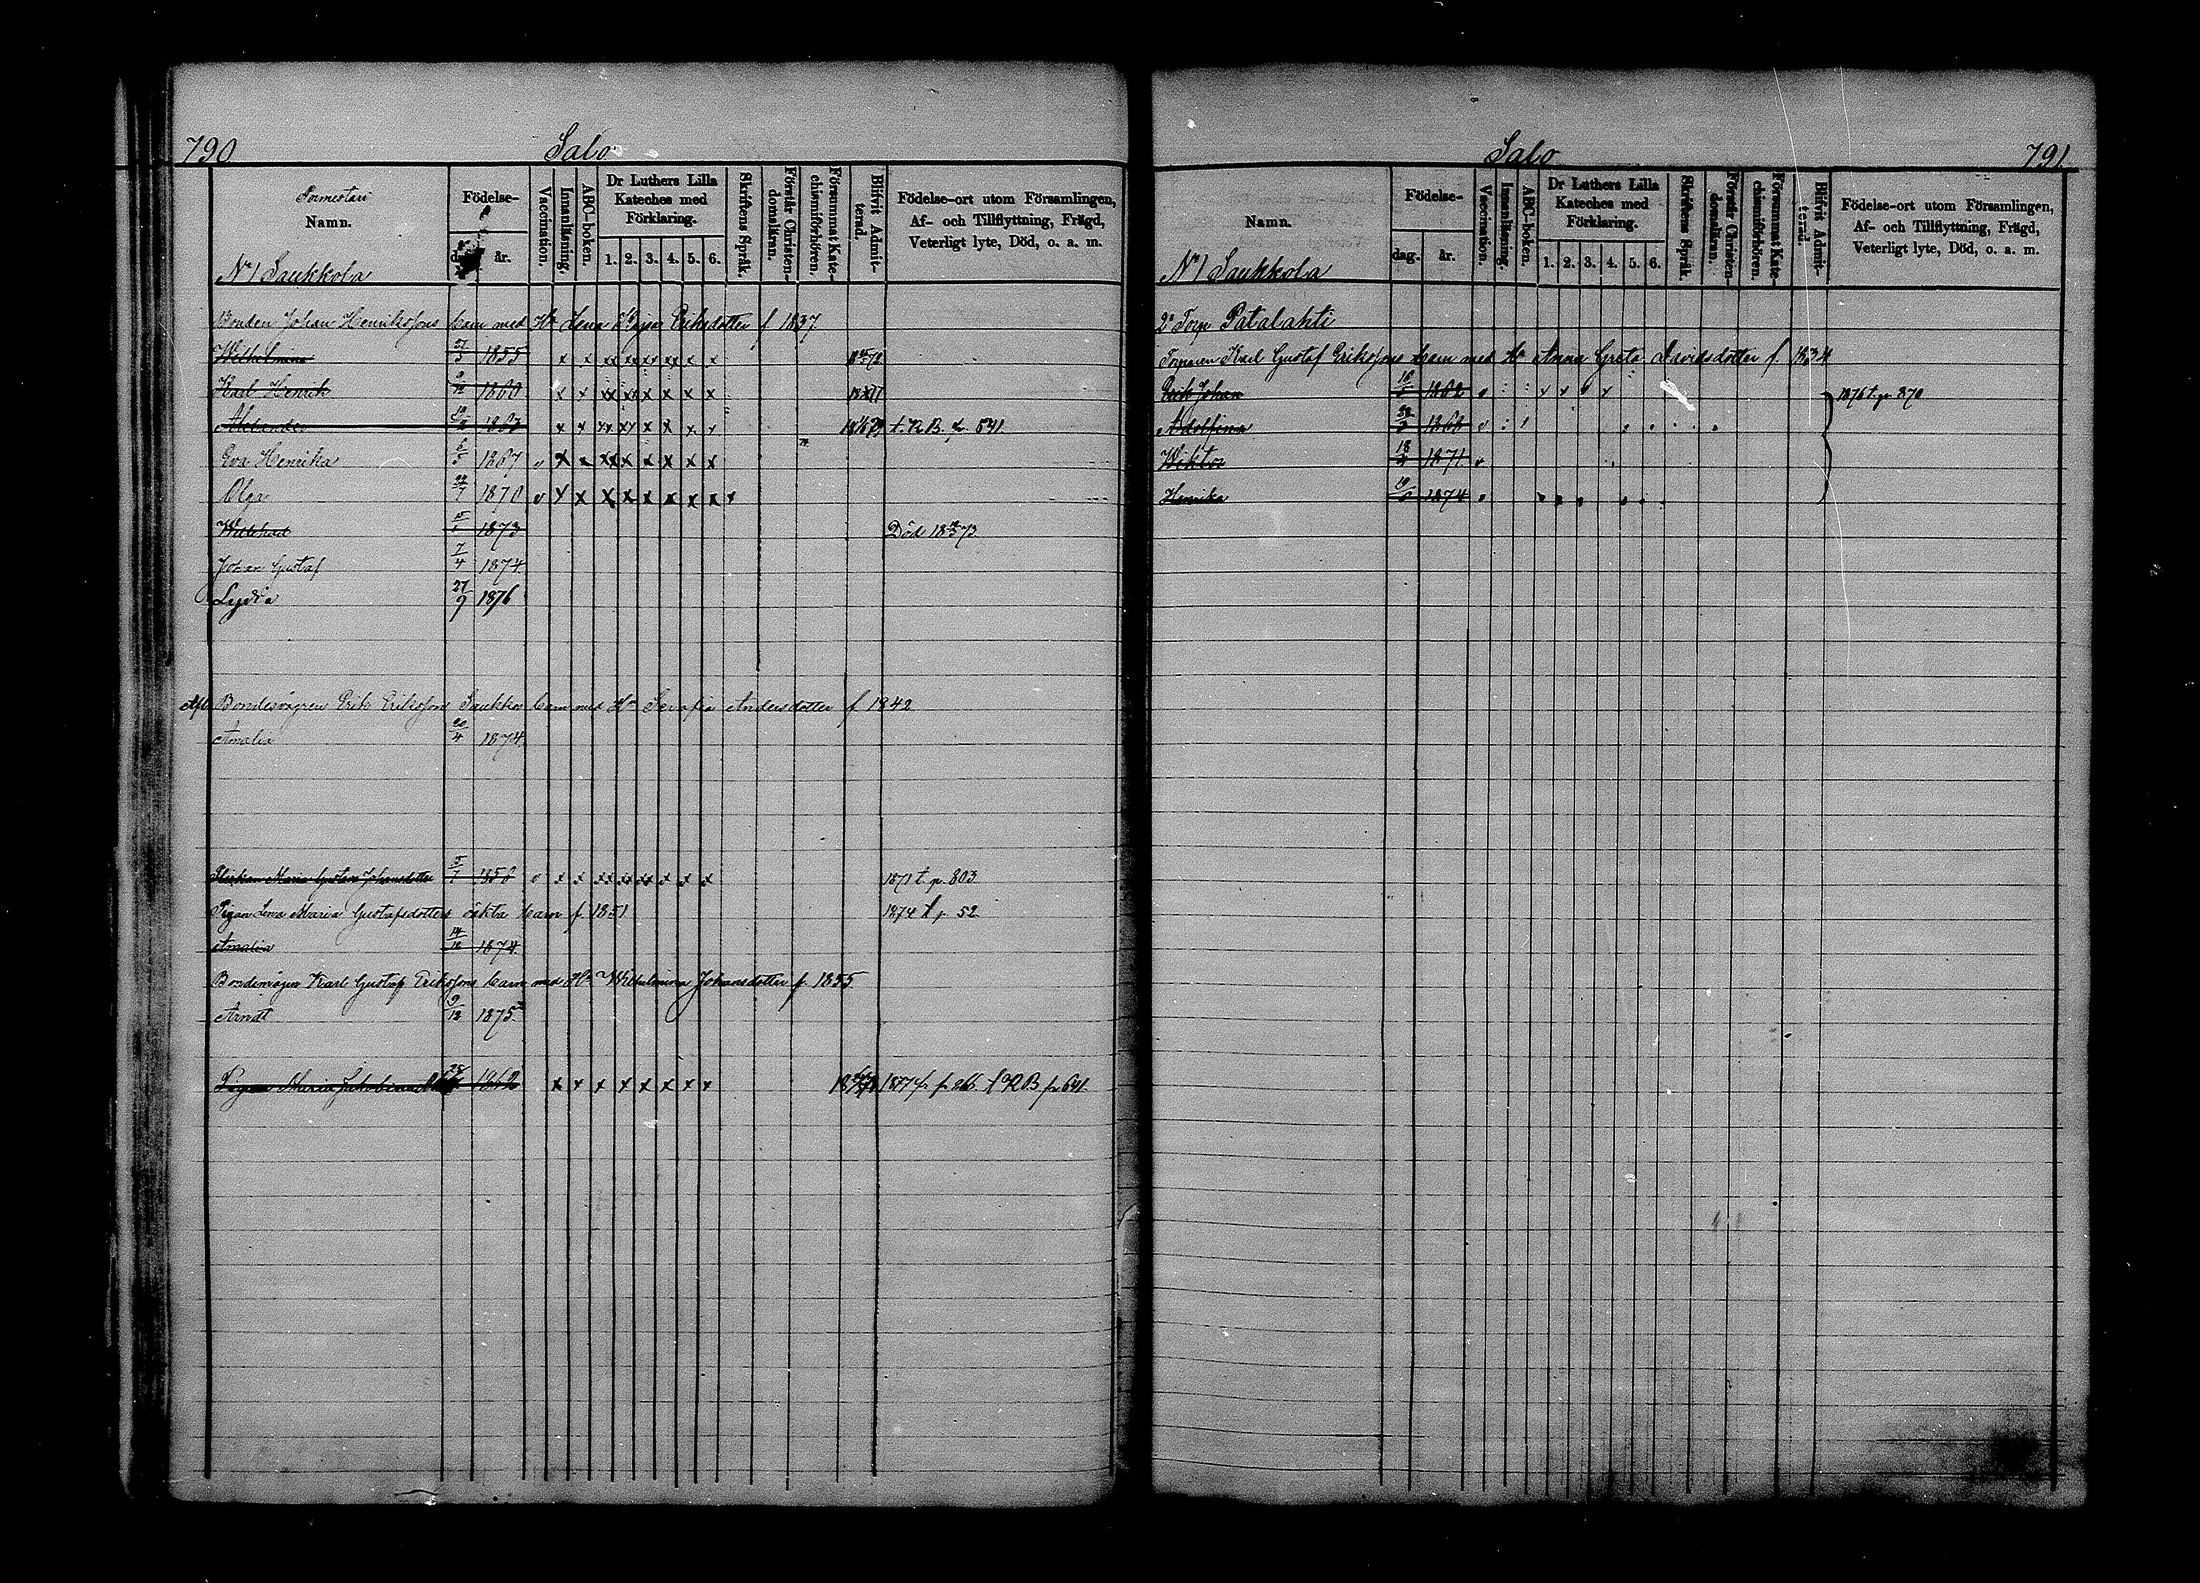 790
Salo
Sormestari
Namn.
Födelse-
dag. år.
Vaccination.
Innanläsning.
ABC-boken.
Dr Luthers Lilla
Kateches med
Förklaring.
1. 2. 3. 4. 5. 6.
Skriftens Språk.
Förstår Christen-
domsläran.
Försummat Kate-
chismiförhören.
Blifvit Admit-
terad.
Födelse-ort utom Församlingen,
Af- och Tillflyttning, Frägd,
Veterligt lyte, Död, o. a. m.
No 1 Saukkola
Bonden Johan Henriksons barn med Hu Lena Kajsa Eriksdotter f 1837
Wilhelmina 1855 x x xx xx xx x x x
Karl Henrik 1860 x x xx xx x x x x
1863 x x xx xx x x x x t. R B. p. 541
Eva Henrika 6/5 1867 v x x xx x x x x x
Olga 22/7 1870 v x x x x x x x x x
1873 Död
Johan Gustaf 7/4 1874
Lydia 27/9 1876
Bondesvågren Erik Eriksons Saukko barn med Hu Serafia Andersdotter f 1842
Amalia 20/4 1874
Flickan Maria Gustava Johansdotter v x x xx xx xx x x x 1871 t. p. 803
Pigan Lena Maria Gustafsdotters oäkta barn f. 1851 1874 f p 52
Amalia 14/12 1874
Bondemågen Karl Gustaf Eriksons barn med Hu Wilhelmina Johansdotter f. 1855
Arvid 9/12 1875
Pigan Maria 1862 x x x x x x x x 1877 fr p 266. t R B p 641
791
Salo
Namn.
Födelse-
dag. år.
Vaccination.
Innanläsning.
ABC-boken.
Dr Luthers Lilla
Kateches med
Förklaring.
1. 2. 3. 4. 5. 6.
Skriftens Språk.
Förstår Christen-
domsläran.
Försummat Kate-
chismiförhören.
Blifvit Admit-
terad.
Födelse-ort utom Församlingen,
Af- och Tillflyttning, Frägd,
Veterligt lyte, Död, o. a. m.
No 1 Saukkola
2a Torp Patalahti
Torparen Karl Gustaf Eriksons barn med Hu Anna Greta Davidsdotter f. 1834
Erik Johan 1862 1876 t. p. 870
Adolfina 1868
Wiktor 1871
Henrika 1874